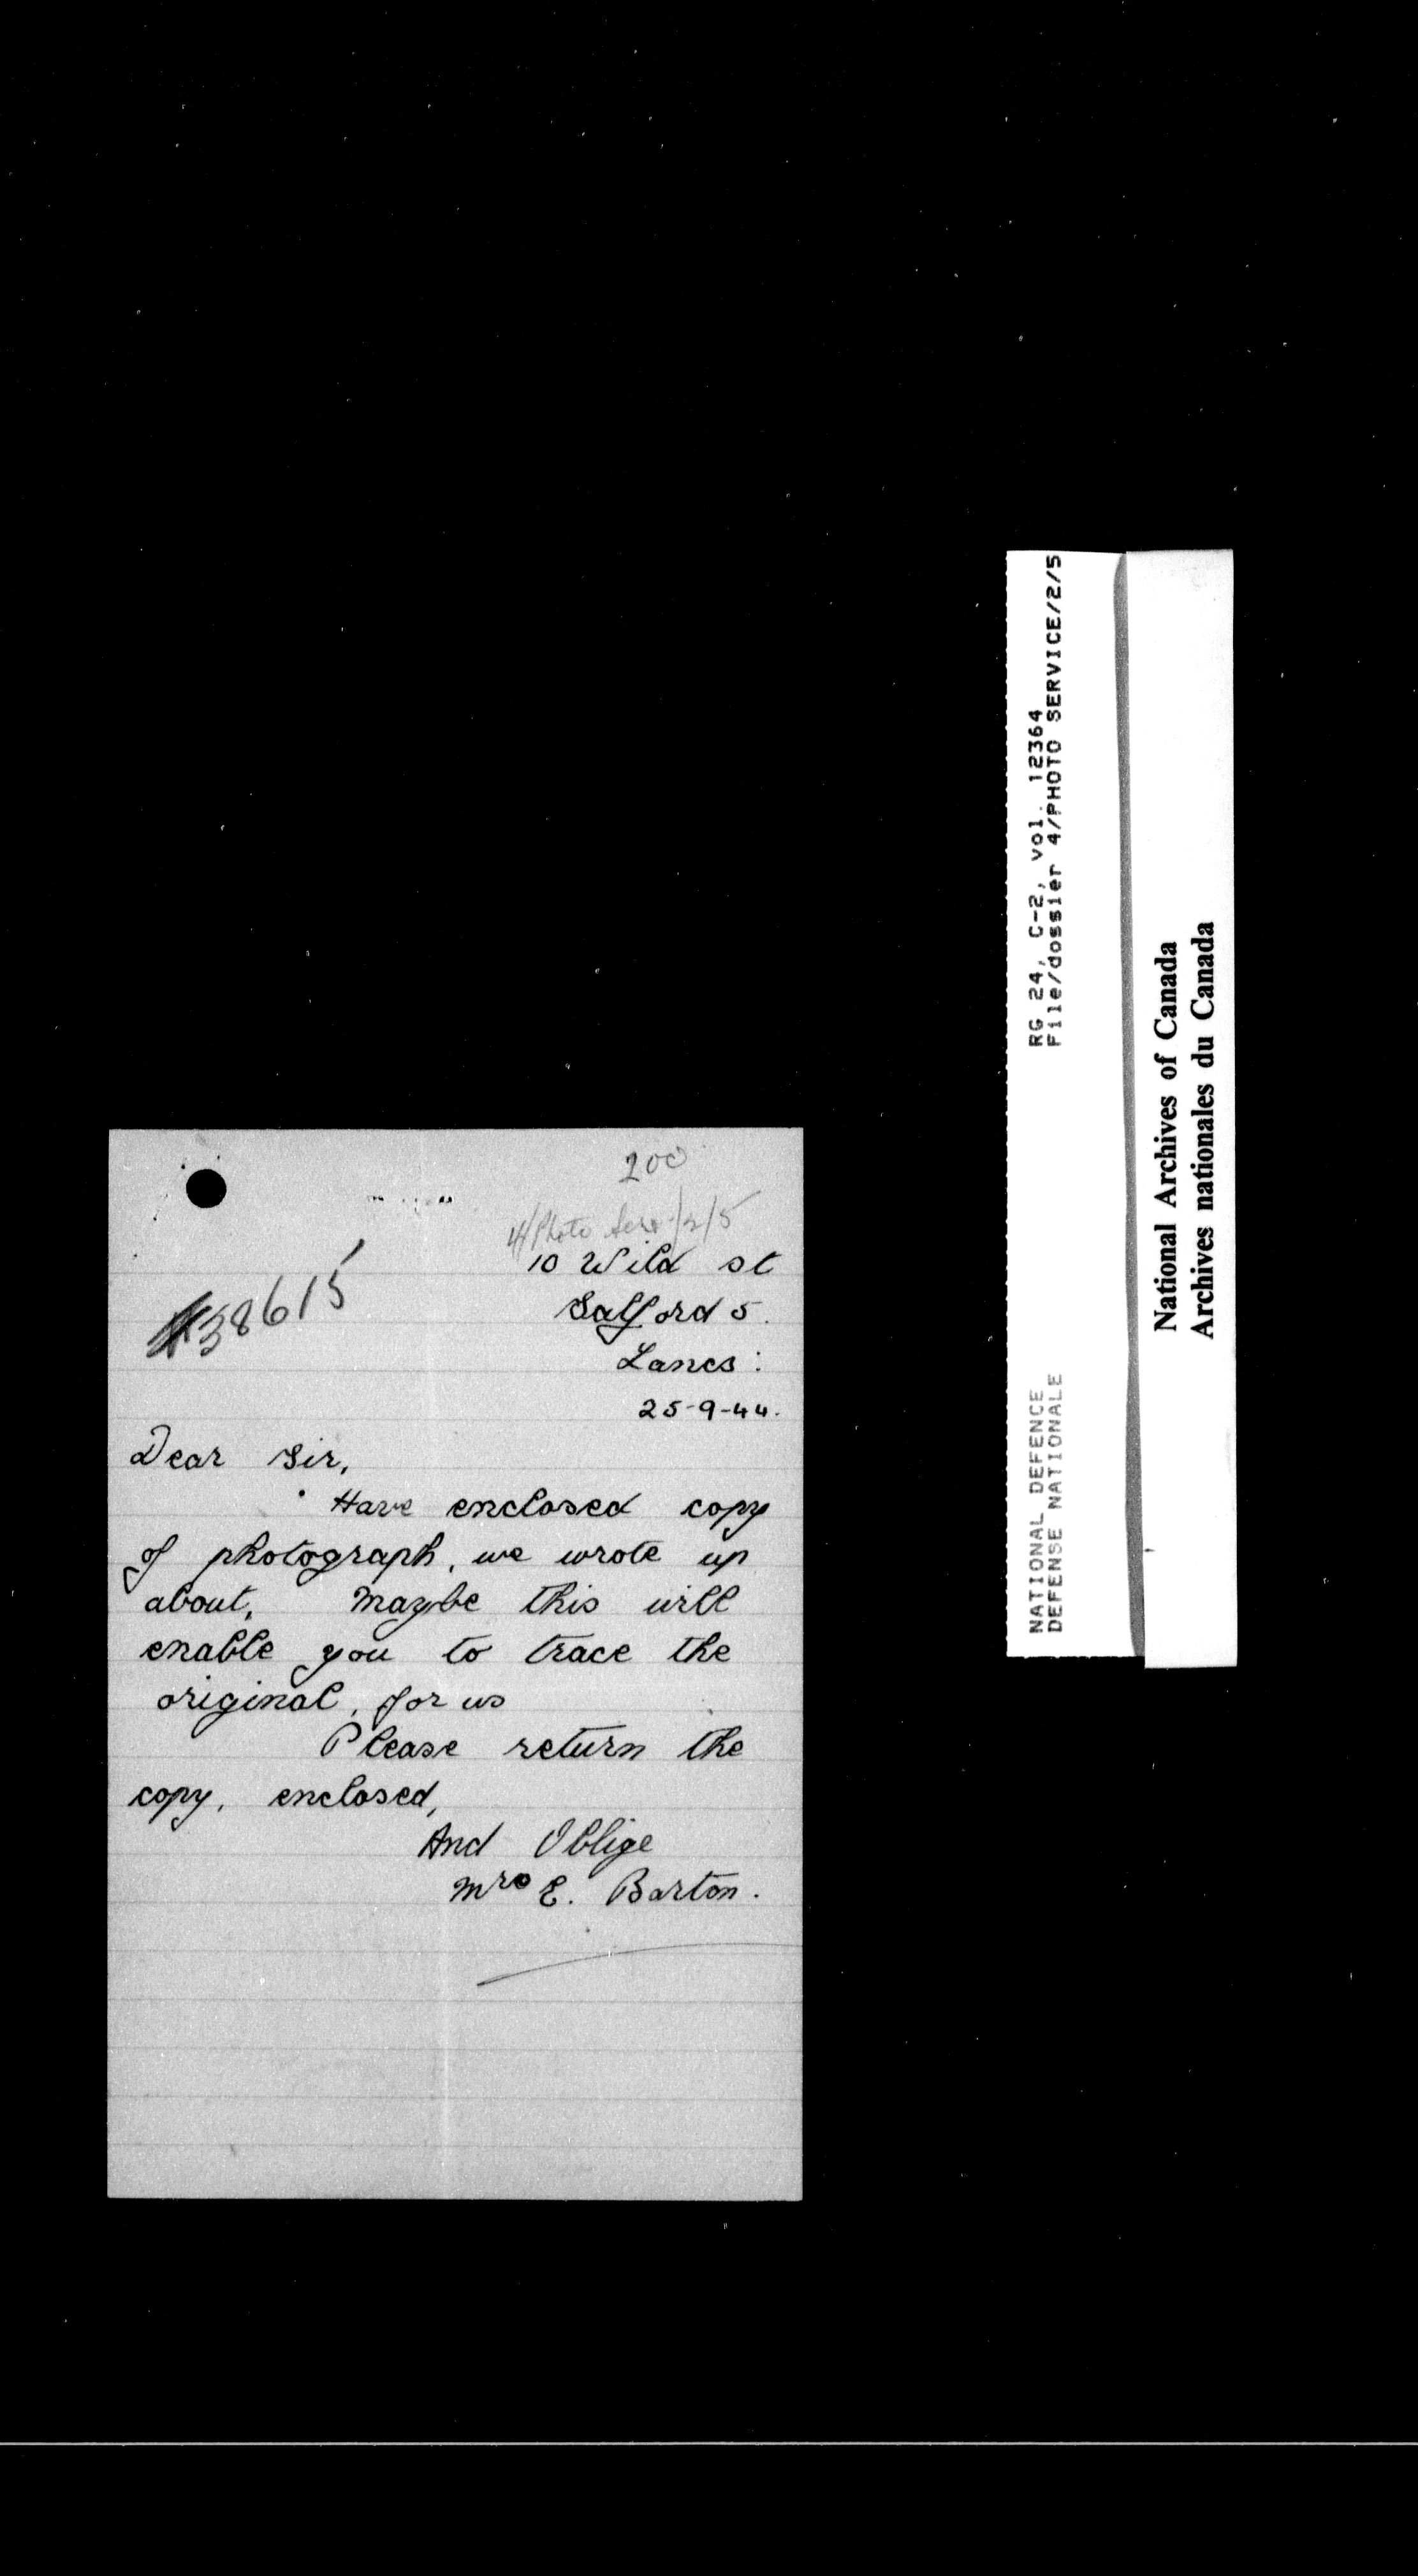 200
4/Photo Serv/2/5
10 Wild st
Salford 5.
Lancs:
25-9-44.
38615
Dear Sir,
Have enclosed copy
of photograph, we wrote up
about, Maybe this will
enable you to trace the
original, for us
Please return the
copy, enclosed,
And Oblige
Mrs E. Barton.
RG 24, C-2, vol. 12364
File/dossier 4/PHOTO SERVICE/2/5
NATIONAL DEFENCE
DEFENSE NATIONALE
National Archives of Canada
Archives nationales du Canada